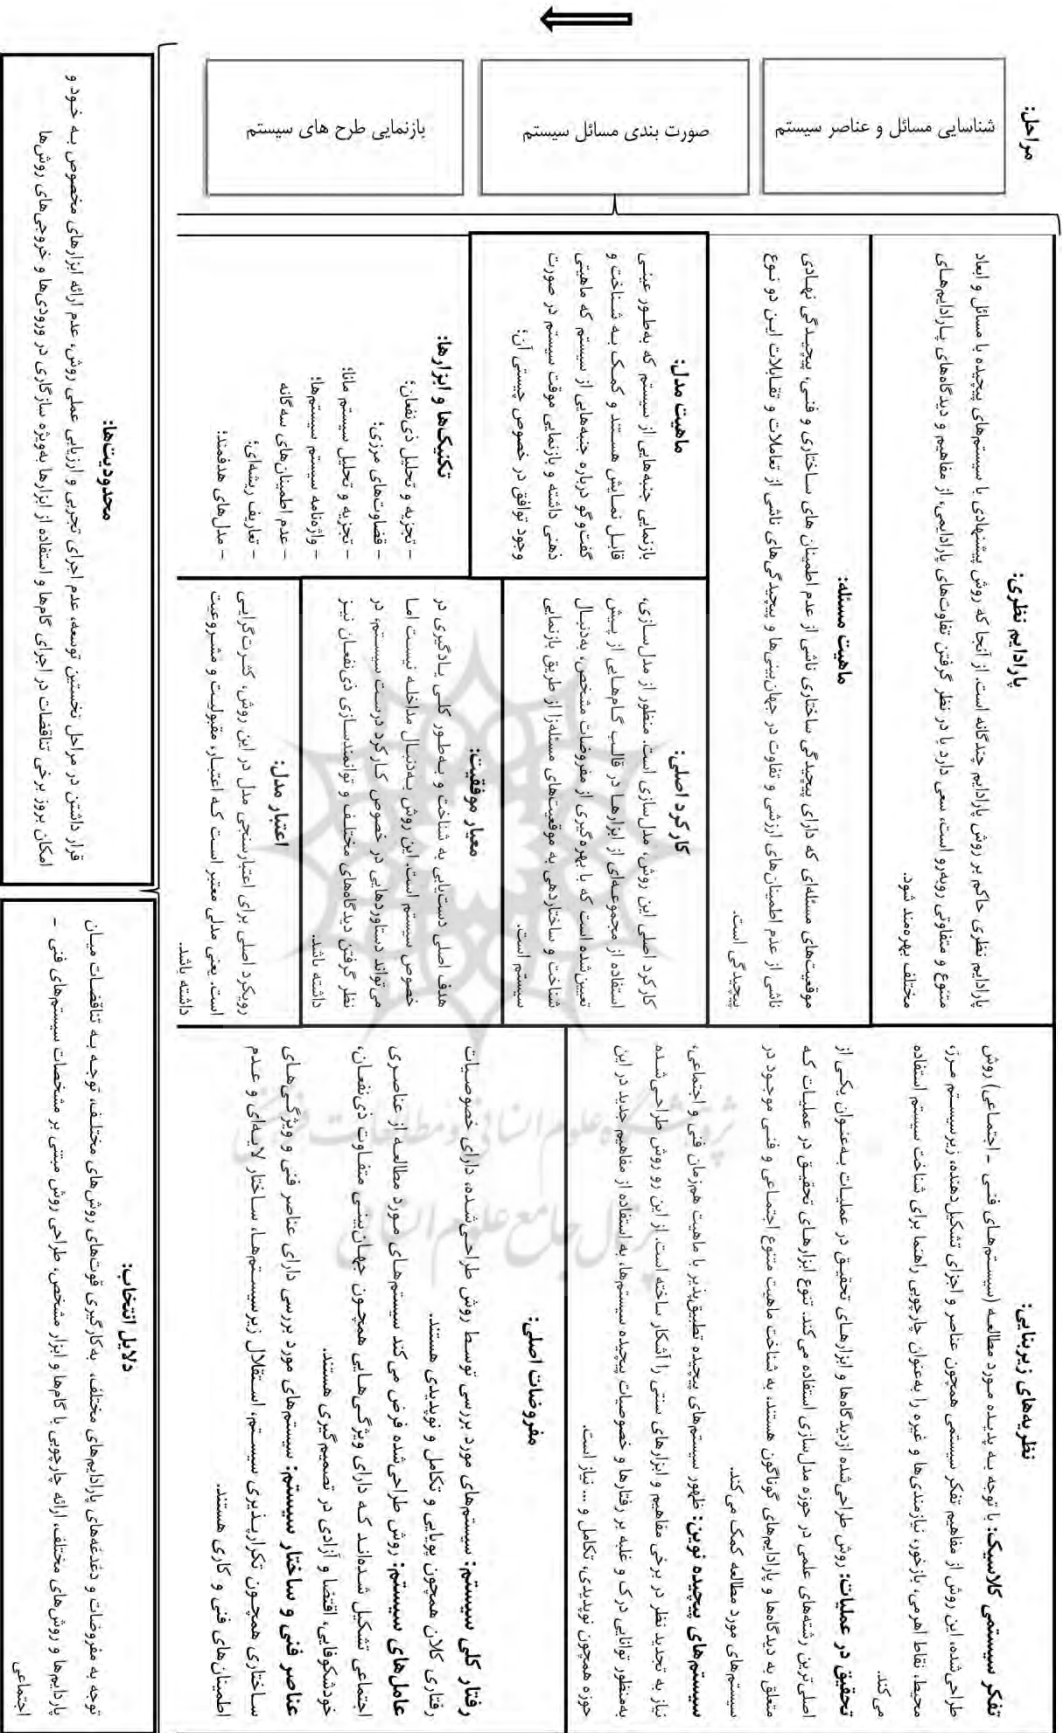 مراحل:
شناسایی مسائل و عناصر سیستم
صورت بندی مسائل سیستم
بازنمایی طرح های سیستم
پارادایم نظری:
پارادایم نظری حاکم بر روش پارادایم چندگانه است. از آنجا که روش پیشنهادی با سیستم‌های پیچیده با مسائل و ابعاد
متنوع و متفاوتی روبه‌رو است، سعی دارد با در نظر گرفتن تفاوت‌های پارادایمی، از مفاهیم و دیدگاه‌های پـارادایم‌هـای
مختلف بهره‌مند شود.
ماهیت مسئله:
موقعیت‌های مسئله‌ای که دارای پیچیدگی ساختاری ناشی از عدم اطمینان های ساختاری و فنـی، پیچیـدگی نهـادی
ناشی از عدم اطمینان‌های ارزشی و تفاوت در جهان‌بینی‌ها و پیچیدگی‌های ناشی از تعاملات و تقـابلات ایـن دو نـوع
پیچیدگی است.
ماهیت مدل:
بازنمایی جنبه‌هایی از سیستم که به‌طـور عینـی
قابـل نمـایش هسـتند و کمـک بـه شـناخت و
گفت‌وگو درباره جنبه‌هایی از سیستم که ماهیتی
ذهنی داشته و بازنمایی موقت سیستم در صورت
وجود توافق در خصوص چیستی آن؛
کارکرد اصلی:
کارکرد اصلی این روش، مدل‌سازی است. منظور از مدل‌سـازی،
استفاده از مجموعه‌ای از ابزارهـا در قالـب گـام‌هـایی از پـیش
تعیین‌شده است که با بهره‌گیری از مفروضات مشخص، به‌دنبـال
شناخت و ساختاردهی به موقعیت‌های مسئله‌زا از طریق بازنمایی
سیستم است.
تکنیک‌ها و ابزارها:
– تجزیه و تحلیل ذی‌نفعان؛
– قضاوت‌های مرزی؛
– تجزیه و تحلیل سیستم مانا؛
– واژه‌نامه سیستم سیستم‌ها؛
– عدم اطمینان‌های سه‌گانه
– تعاریف ریشه‌ای؛
– مدل‌های هدفمند؛
معیار موفقیت:
هدف اصلی دستیابی به شناخت و بـه‌طـور کلـی یـادگیری در
خصوص سیستم است. این روش بـه‌دنبـال مداخلـه نیسـت امـا
می‌تواند دستاوردهایی در خصوص کـارکرد درسـت سیسـتم، در
نظر گرفتن دیدگاه‌های مختلـف و توانمندسـازی ذی‌نفعـان نیـز
داشته باشد.
اعتبار مدل:
رویکرد اصلی برای اعتبارسنجی مدل در این روش، کثـرت‌گرایـی
است. یعنی مدلی معتبر است کـه اعتبـار، مقبولیـت و مشـروعیت
داشته باشد.
نظریه‌های زیربنایی:
تفکر سیستمی کلاسیک: با توجه بـه پدیـده مـورد مطالعـه (سیسـتم‌هـای فنـی - اجتمـاعی) روش
طراحی‌شده، این روش از مفاهیم تفکر سیستمی همچون عناصر و اجزای تشکیل‌دهنده، زیرسیسـتم مـرز،
محیط، نقاط اهرمی، بازخور، نیازمندی‌ها و غیره را به‌عنوان چارچوبی راهنما برای شناخت سیستم استفاده
می‌کند.
تحقیق در عملیات: روش طراحی‌شده از دیدگاه‌ها و ابزارهـای تحقیـق در عملیـات بـه‌عنـوان یکـی از
اصلی‌ترین رشته‌های علمی در حوزه مدل‌سازی استفاده می‌کند. تنوع ابزارهـای تحقیـق در عملیـات کـه
متعلق به دیدگاه‌ها و پارادایم‌های گوناگون هستند، به شناخت ماهیت متنوع اجتماعی و فنـی موجـود در
سیستم‌های مورد مطالعه کمک می‌کند.
سیستم‌های پیچیده نوین: ظهور سیستم‌های پیچیده تطبیق‌پذیر با ماهیت هم‌زمان فنی و اجتماعی،
نیاز به تجدید نظر در برخی مفاهیم و ابزارهای سنتی را آشکار ساخته است. از این رو روش طراحی‌شـده
به‌منظور توانایی درک و غلبه بر رفتارها و خصوصیات پیچیده سیستم‌ها، به استفاده از مفاهیم جدید در این
حوزه همچون نوپدیدی، تکامل و ... نیاز است.
مفروضات اصلی:
رفتار کلی سیستم: سیستم‌های مورد بررسی توسـط روش طراحـی‌شـده، دارای خصوصـیات
رفتاری کلان همچون پویایی و تکامل و نوپدیدی هستند.
عامل‌های سیستم: روش طراحی‌شده فرض می‌کند سیستم‌هـای مـورد مطالعـه از عناصـری
اجتماعی تشکیل شـده‌انـد کـه دارای ویژگـی‌هـایی همچـون جهـان‌بینـی متفـاوت ذی‌نفعـان،
خودشکوفایی، اقتضا و آزادی در تصمیم‌گیری هستند.
عناصر فنی و ساختار سیستم: سیستم‌های مورد بررسی دارای عناصر فنی و ویژگـی‌هـای
سـاختاری همچـون تکرارپـذیری سیسـتم، اسـتقلال زیرسیسـتم‌هـا، سـاختار لایـه‌ای و عـدم
اطمینان‌های فنی و کاری هستند.
محدودیت‌ها:
قرار داشتن در مراحل نخستین توسعه، عدم اجرای تجربی و ارزیابی عملی روش، عدم ارائه ابزارهای مخصوص بـه خـود و
امکان بروز برخی تناقضات در اجرای گام‌ها و استفاده از ابزارها به‌ویژه سازگاری در ورودی‌ها و خروجی‌های روش‌ها
دلایل انتخاب:
توجه به مفروضات و دغدغه‌های پارادایم‌های مختلف، به‌کارگیری قوت‌های روش‌های مختلـف، توجـه بـه تناقضـات میـان
پارادایم‌ها و روش‌های مختلف، ارائه چارچوبی با گام‌ها و ابزار مشخص، طراحی روش مبتنی بر مشخصات سیستم‌های فنی -
اجتماعی
پژوهشگاه علوم انسانی و مطالعات فرهنگی
پرتال جامع علوم انسانی